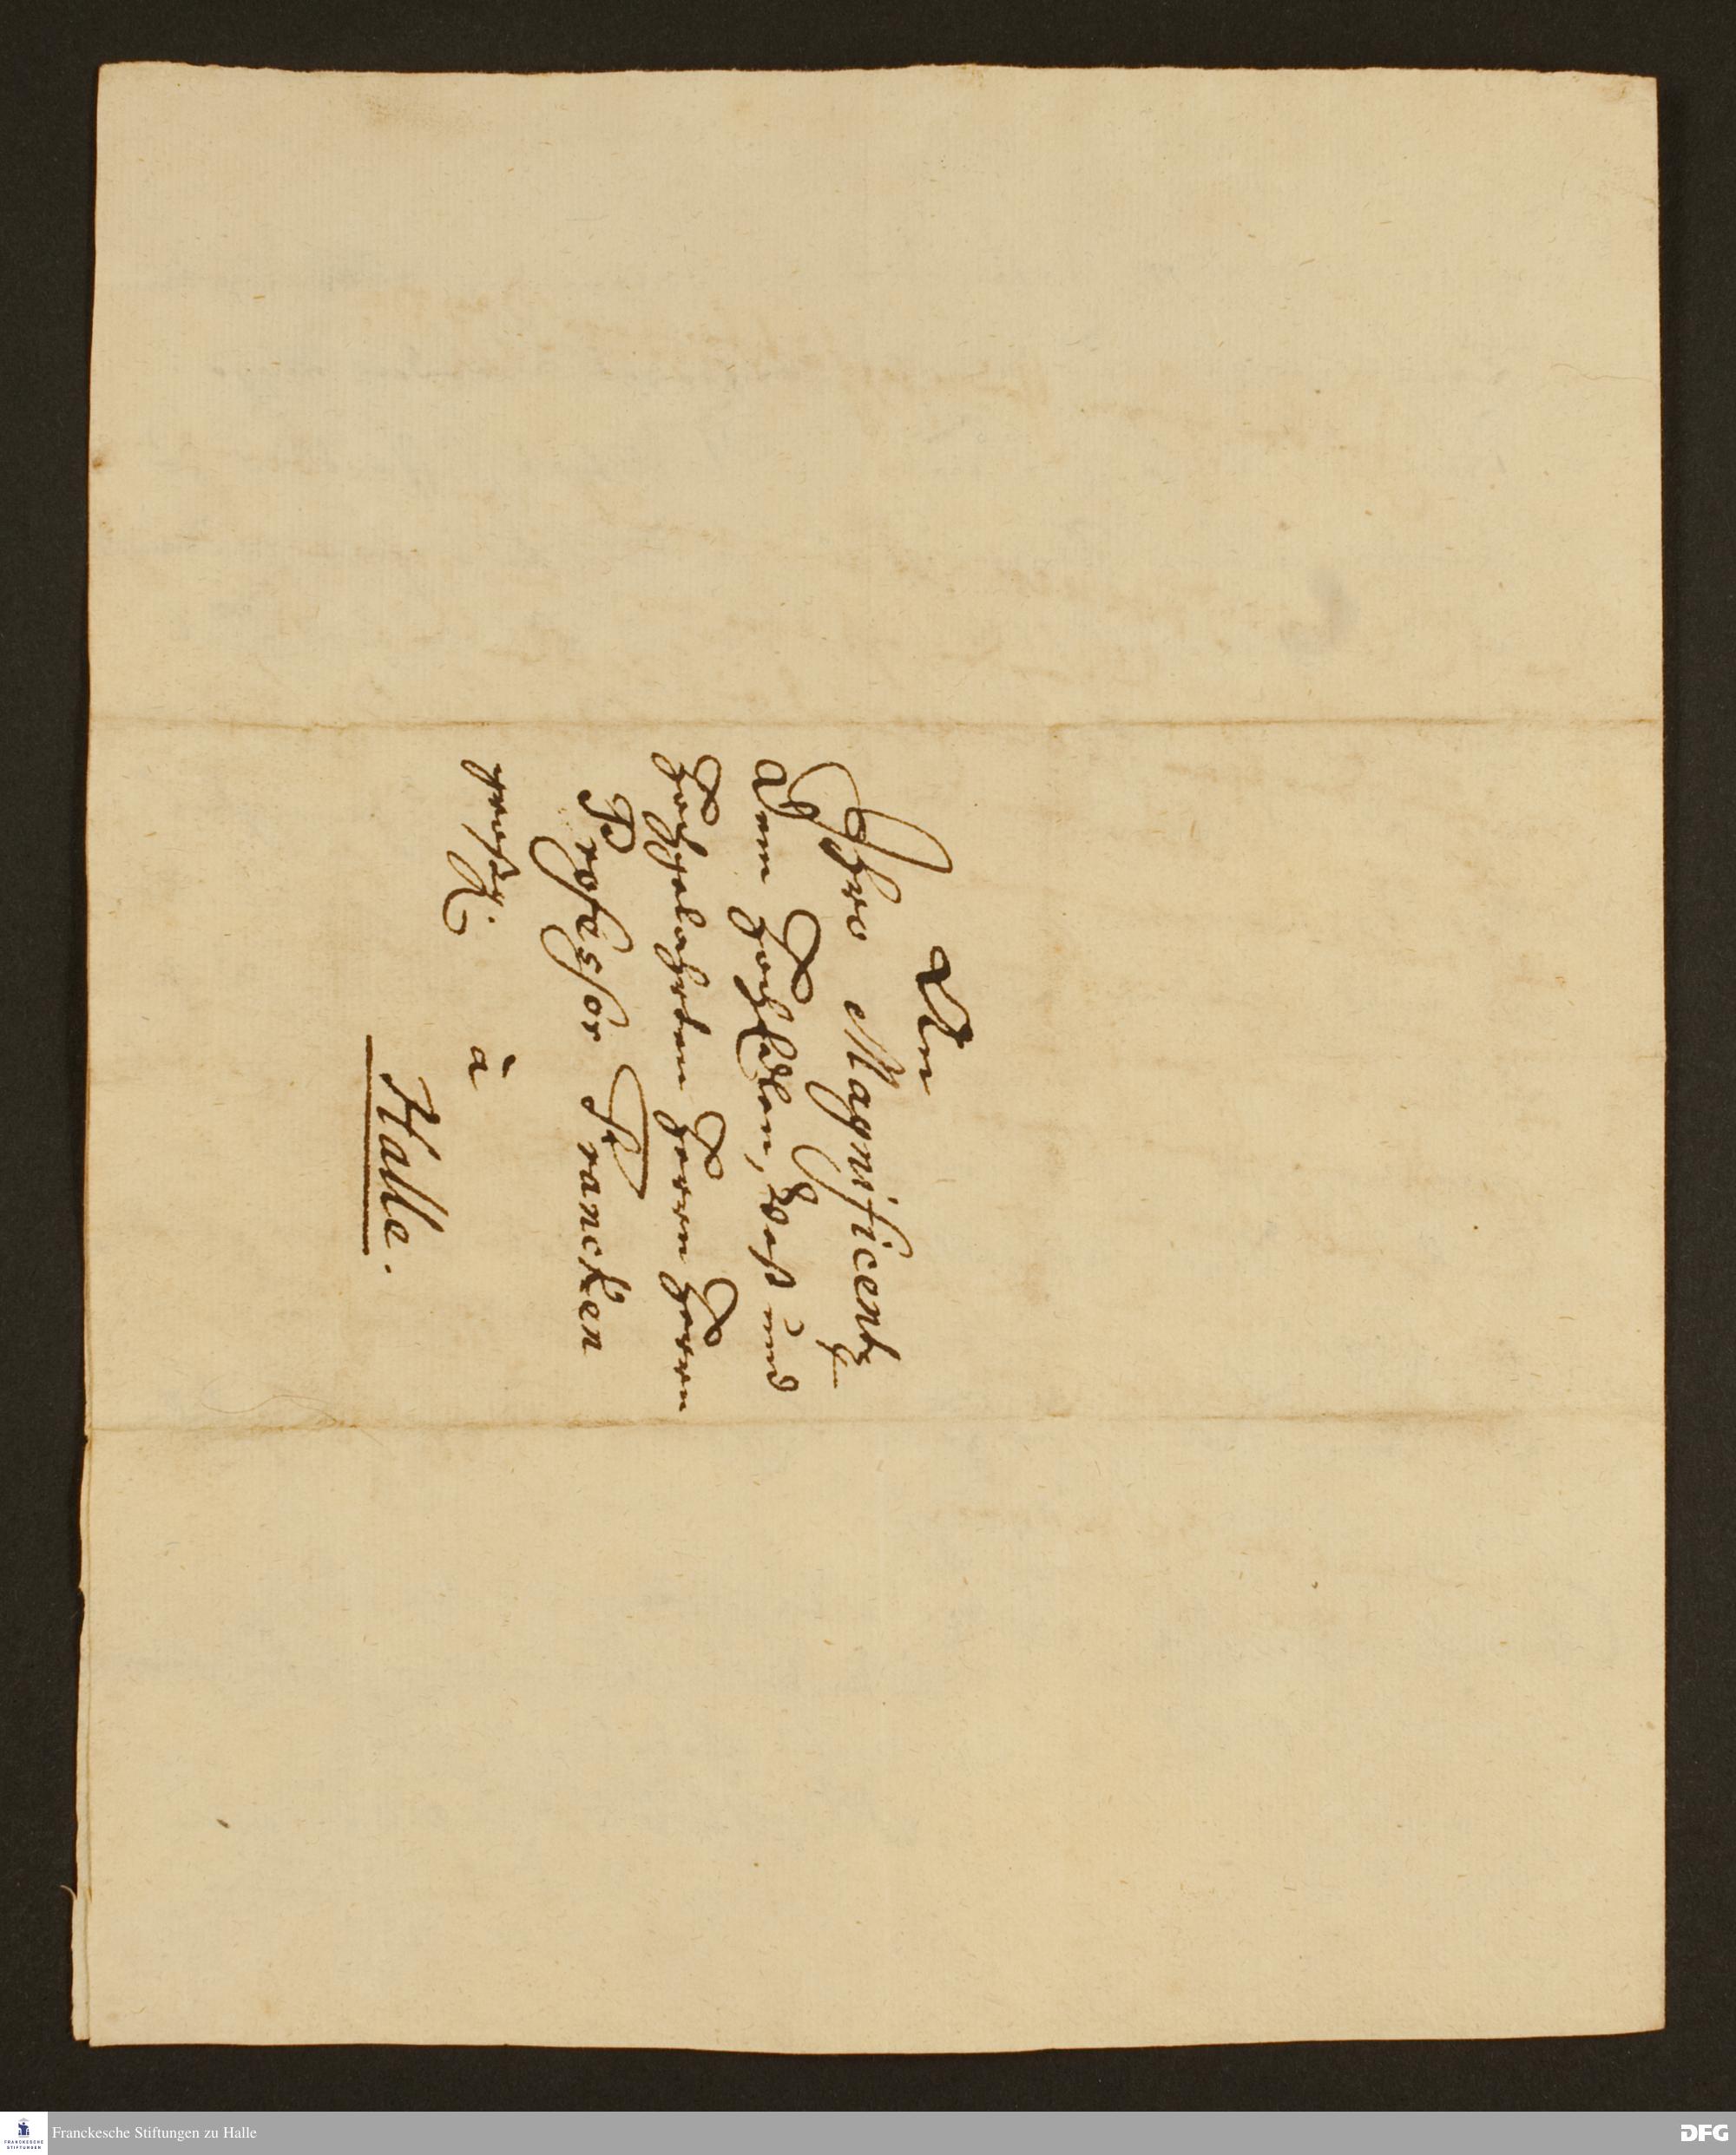 An
Ihro Magnificentz
dem HochEdlen, Vest und
Hochgelahrten Herrn Herrn
Professor Francken
à
Halle.
Franckesche Stiftungen zu Halle
FRANCKESCHE
STIFTUNGEN
DFG